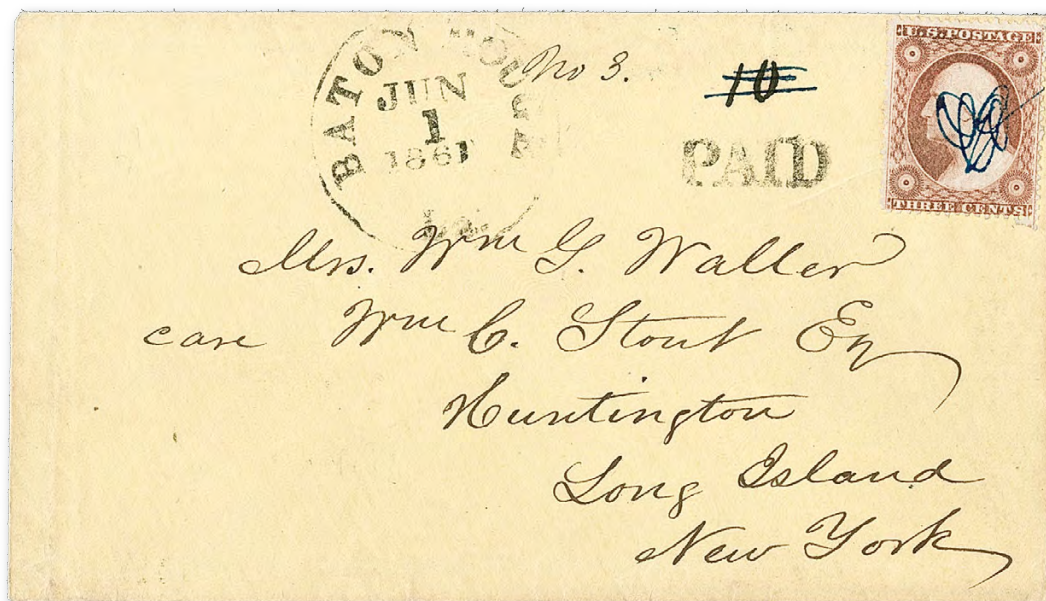 BATON ROUGE
JUN
1
1861
La.
No 3.
10
PAID
U.S. POSTAGE
THREE CENTS
Mrs. Wm G. Waller
care Wm C. Stout Esq
Huntington
Long Island
New York